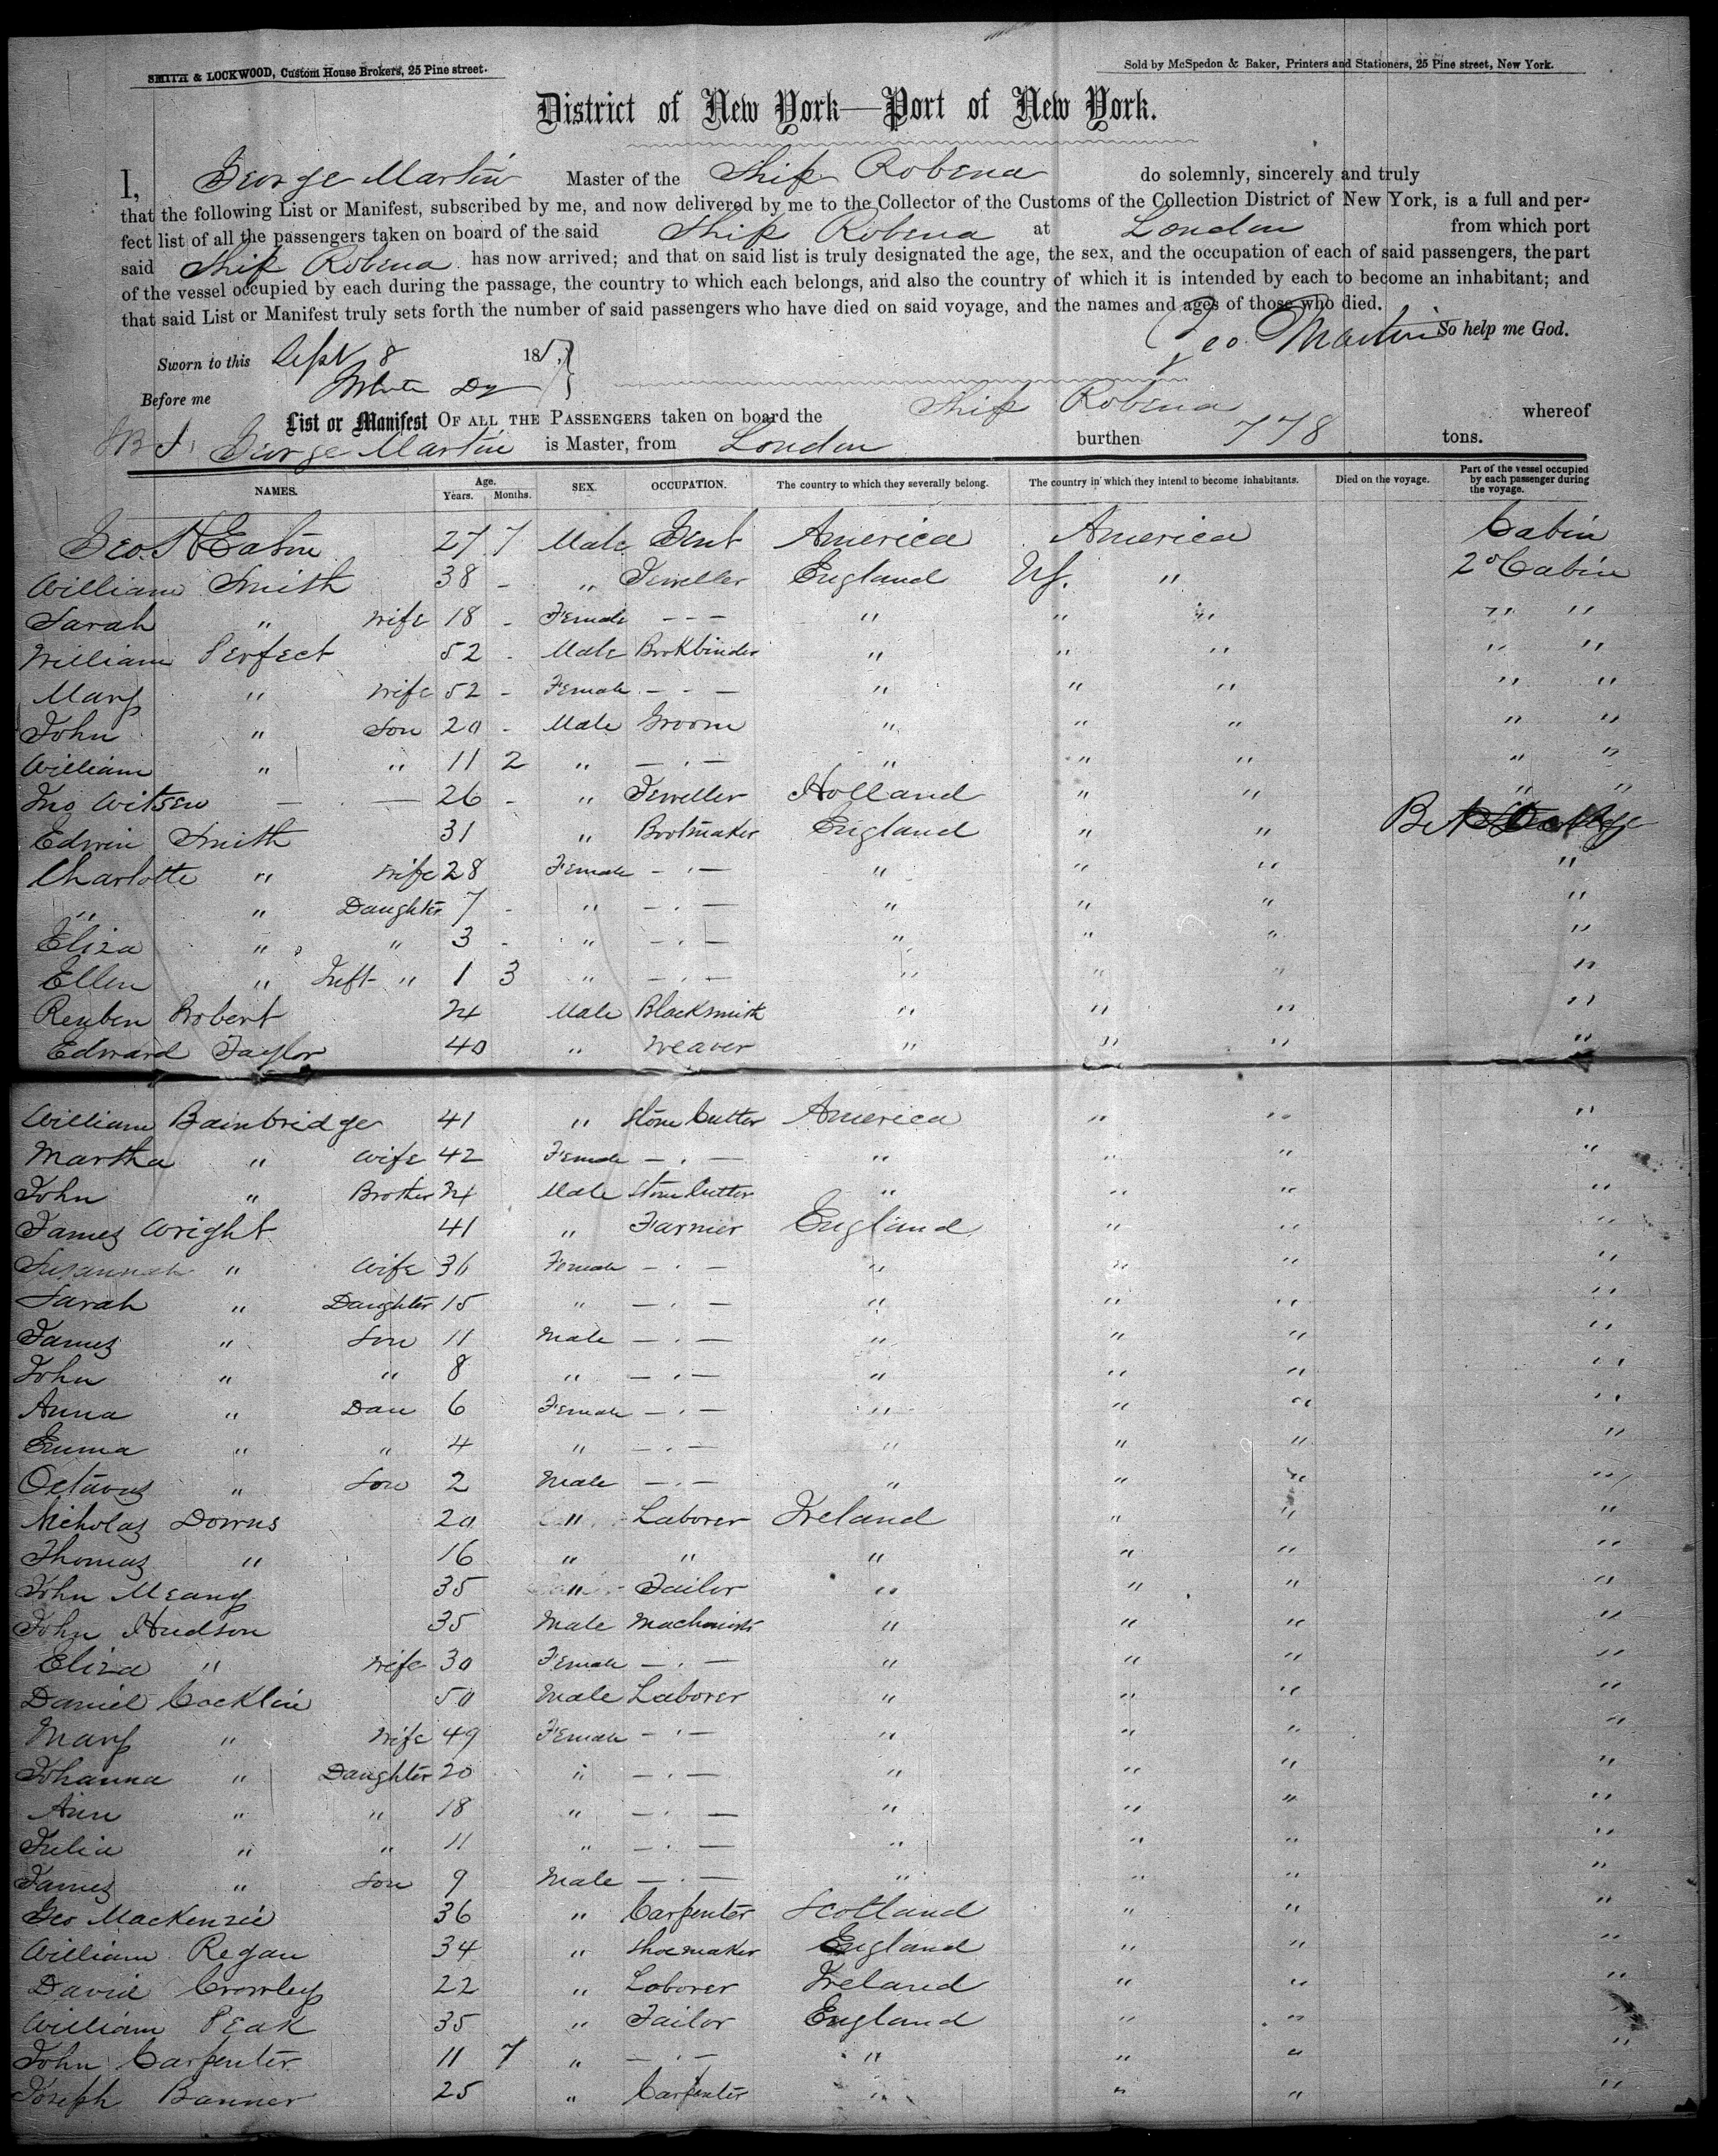 SMITH & LOCKWOOD, Custom House Brokers, 25 Pine street.
Sold by McSpedon & Baker, Printers and Stationers, 25 Pine street, New York.
District of New York—Port of New York.
I, George Martin Master of the Ship Robena do solemnly, sincerely and truly
that the following List or Manifest, subscribed by me, and now delivered by me to the Collector of the Customs of the Collection District of New York, is a full and per-
fect list of all the passengers taken on board of the said Ship Robena at London from which port
said Ship Robena has now arrived; and that on said list is truly designated the age, the sex, and the occupation of each of said passengers, the part
of the vessel occupied by each during the passage, the country to which each belongs, and also the country of which it is intended by each to become an inhabitant; and
that said List or Manifest truly sets forth the number of said passengers who have died on said voyage, and the names and ages of those who died.
Geo Martin So help me God.
Sworn to this Sept 8 185
Before me
List or Manifest OF ALL THE PASSENGERS taken on board the Ship Robena whereof
George Martin is Master, from London burthen 778 tons.
NAMES. Age. Years. Months. SEX. OCCUPATION. The country to which they severally belong. The country in which they intend to become inhabitants. Died on the voyage. Part of the vessel occupied by each passenger during the voyage.
Geo. Eaton 27 7 Male Gent America America Cabin
William Smith 38 - " Jeweller England " 2° Cabin
Sarah " Wife 18 - Female - - - " " " " "
William Perfect 52 - Male Bookbinder " " " " "
Mary " Wife 52 - Female - - - " " " " "
John " Son 20 - Male Groom " " " " "
William " " 11 2 " - . - " " " " "
Jno Witsen - . - 26 - " Jeweller Holland " " " "
Edwin Smith 31 " Bootmaker England " "
Charlotte " Wife 28 Female - . - " " " "
" " Daughter 7 - " - . - " " " "
Eliza " " 3 - " - . - " " " "
Ellen " Inft " 1 3 " - . - " " " "
Reuben Robert 24 Male Blacksmith " " " "
Edward Taylor 40 " Weaver " " " "
William Bainbridge 41 " Stone Cutter America " " "
Martha " Wife 42 Female - . - " " " "
John " Brother 24 Male Stone Cutter " " " "
James Wright 41 " Farmer England " " "
Susannah " Wife 36 Female - . - " " " "
Sarah " Daughter 15 " - . - " " " "
James " Son 11 Male - . - " " " "
John " " 8 " - . - " " " "
Anna " Dau 6 Female - . - " " " "
Emma " " 4 " - . - " " " "
Octavus " Son 2 Male - . - " " " "
Nicholas Downs 20 " Laborer Ireland " " "
Thomas " 16 " " " " " "
John Meany 35 " Tailor " " " "
John Hudson 35 Male Machinist " " " "
Eliza " Wife 30 Female - . - " " " "
Daniel Cocklin 50 Male Laborer " " " "
Mary " Wife 49 Female - . - " " " "
Johanna " Daughter 20 " - . - " " " "
Ann " " 18 " - . - " " " "
Julia " " 11 " - . - " " " "
James " Son 9 Male - . - " " " "
Geo MacKenzie 36 " Carpenter Scotland " " "
William Regan 34 " Shoemaker England " " "
David Crowley 22 " Laborer Ireland " " "
William Peak 35 " Tailor England " " "
John Carpenter 11 7 " - . - " " " "
Joseph Banner 25 " Carpenter " " " "